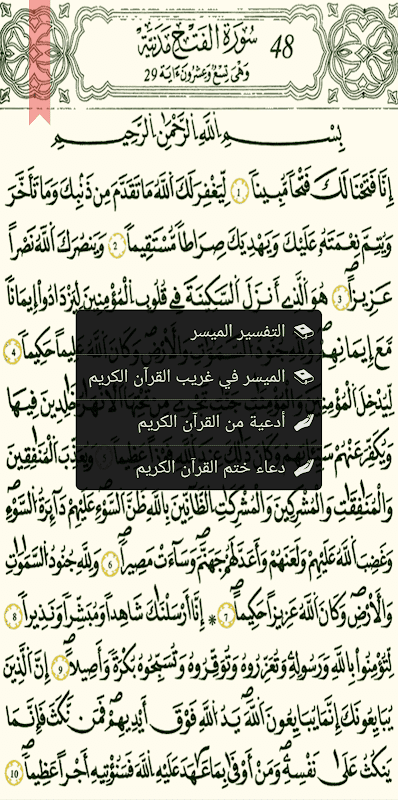 سُورَةُ الْفَتْحِ مَدَنِيَّة 48
وَهْيَ تِسْعٌ وَعِشْرُونَ ءَايَةً 29
بِسْمِ اللَّهِ الرَّحْمَٰنِ الرَّحِيمِ
إِنَّا فَتَحْنَا لَكَ فَتْحاً مُّبِيناً 1 لِّيَغْفِرَ لَكَ اللَّهُ مَا تَقَدَّمَ مِن ذَنۢبِكَ وَمَا تَأَخَّرَ
وَيُتِمَّ نِعْمَتَهُ عَلَيْكَ وَيَهْدِيَكَ صِرَاطاً مُّسْتَقِيماً 2 وَيَنصُرَكَ اَللَّهُ نَصْراً
عَزِيزاً 3 هُوَ الَّذِے أَنزَلَ السَّكِينَةَ فِے قُلُوبِ الْمُؤْمِنِينَ لِيَزْدَادُوٓاْ إِيمَٰناً
مَّعَ إِيمَٰنِهِمْ عَلِيماً حَكِيماً 4
لِّيُدْخِلَ الْمُؤْمِنِينَ خَٰلِدِينَ فِيهَا
وَيُكَفِّرَ عَنْهُمْ سَيِّـَٔاتِهِمْ وَيُعَذِّبَ الْمُنَٰفِقِينَ
وَالْمُنَٰفِقَٰتِ وَالْمُشْرِكِينَ وَالْمُشْرِكَٰتِ الظَّآنِّينَ بِاللَّهِ ظَنَّ السَّوْءِ عَلَيْهِمْ دَآئِرَةُ السَّوْءِ
وَغَضِبَ اَللَّهُ عَلَيْهِمْ وَلَعَنَهُمْ وَأَعَدَّ لَهُمْ جَهَنَّمَ وَسَآءَتْ مَصِيراً 6 وَلِلهِ جُنُودُ السَّمَٰوَٰتِ
وَالْأَرْضِ وَكَانَ اَللَّهُ عَزِيزاً حَكِيماً 7 * إِنَّآ أَرْسَلْنَٰكَ شَٰهِداً وَمُبَشِّراً وَنَذِيراً 8
لِّتُؤْمِنُواْ بِاللَّهِ وَرَسُولِهِ وَتُعَزِّرُوهُ وَتُوَقِّرُوهُ وَتُسَبِّحُوهُ بُكْرَةً وَأَصِيلاً 9 إِنَّ الَّذِينَ
يُبَايِعُونَكَ إِنَّمَا يُبَايِعُونَ اَللَّهَ يَدُ اللَّهِ فَوْقَ أَيْدِيهِمْ فَمَن نَّكَثَ فَإِنَّمَا
يَنكُثُ عَلَىٰ نَفْسِهِ وَمَنْ أَوْفَىٰ بِمَا عَٰهَدَ عَلَيْهِ اِللَّهَ فَسَنُؤْتِيهِ أَجْراً عَظِيماً 10
التفسير الميسر
الميسر في غريب القرآن الكريم
أدعية من القرآن الكريم
دعاء ختم القرآن الكريم